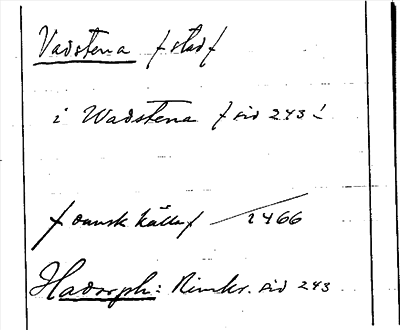 Vadstena / stad /
i Wadstena / sid 243!
/ dansk källa / 1466
Hadorph: Rimkr. sid 243